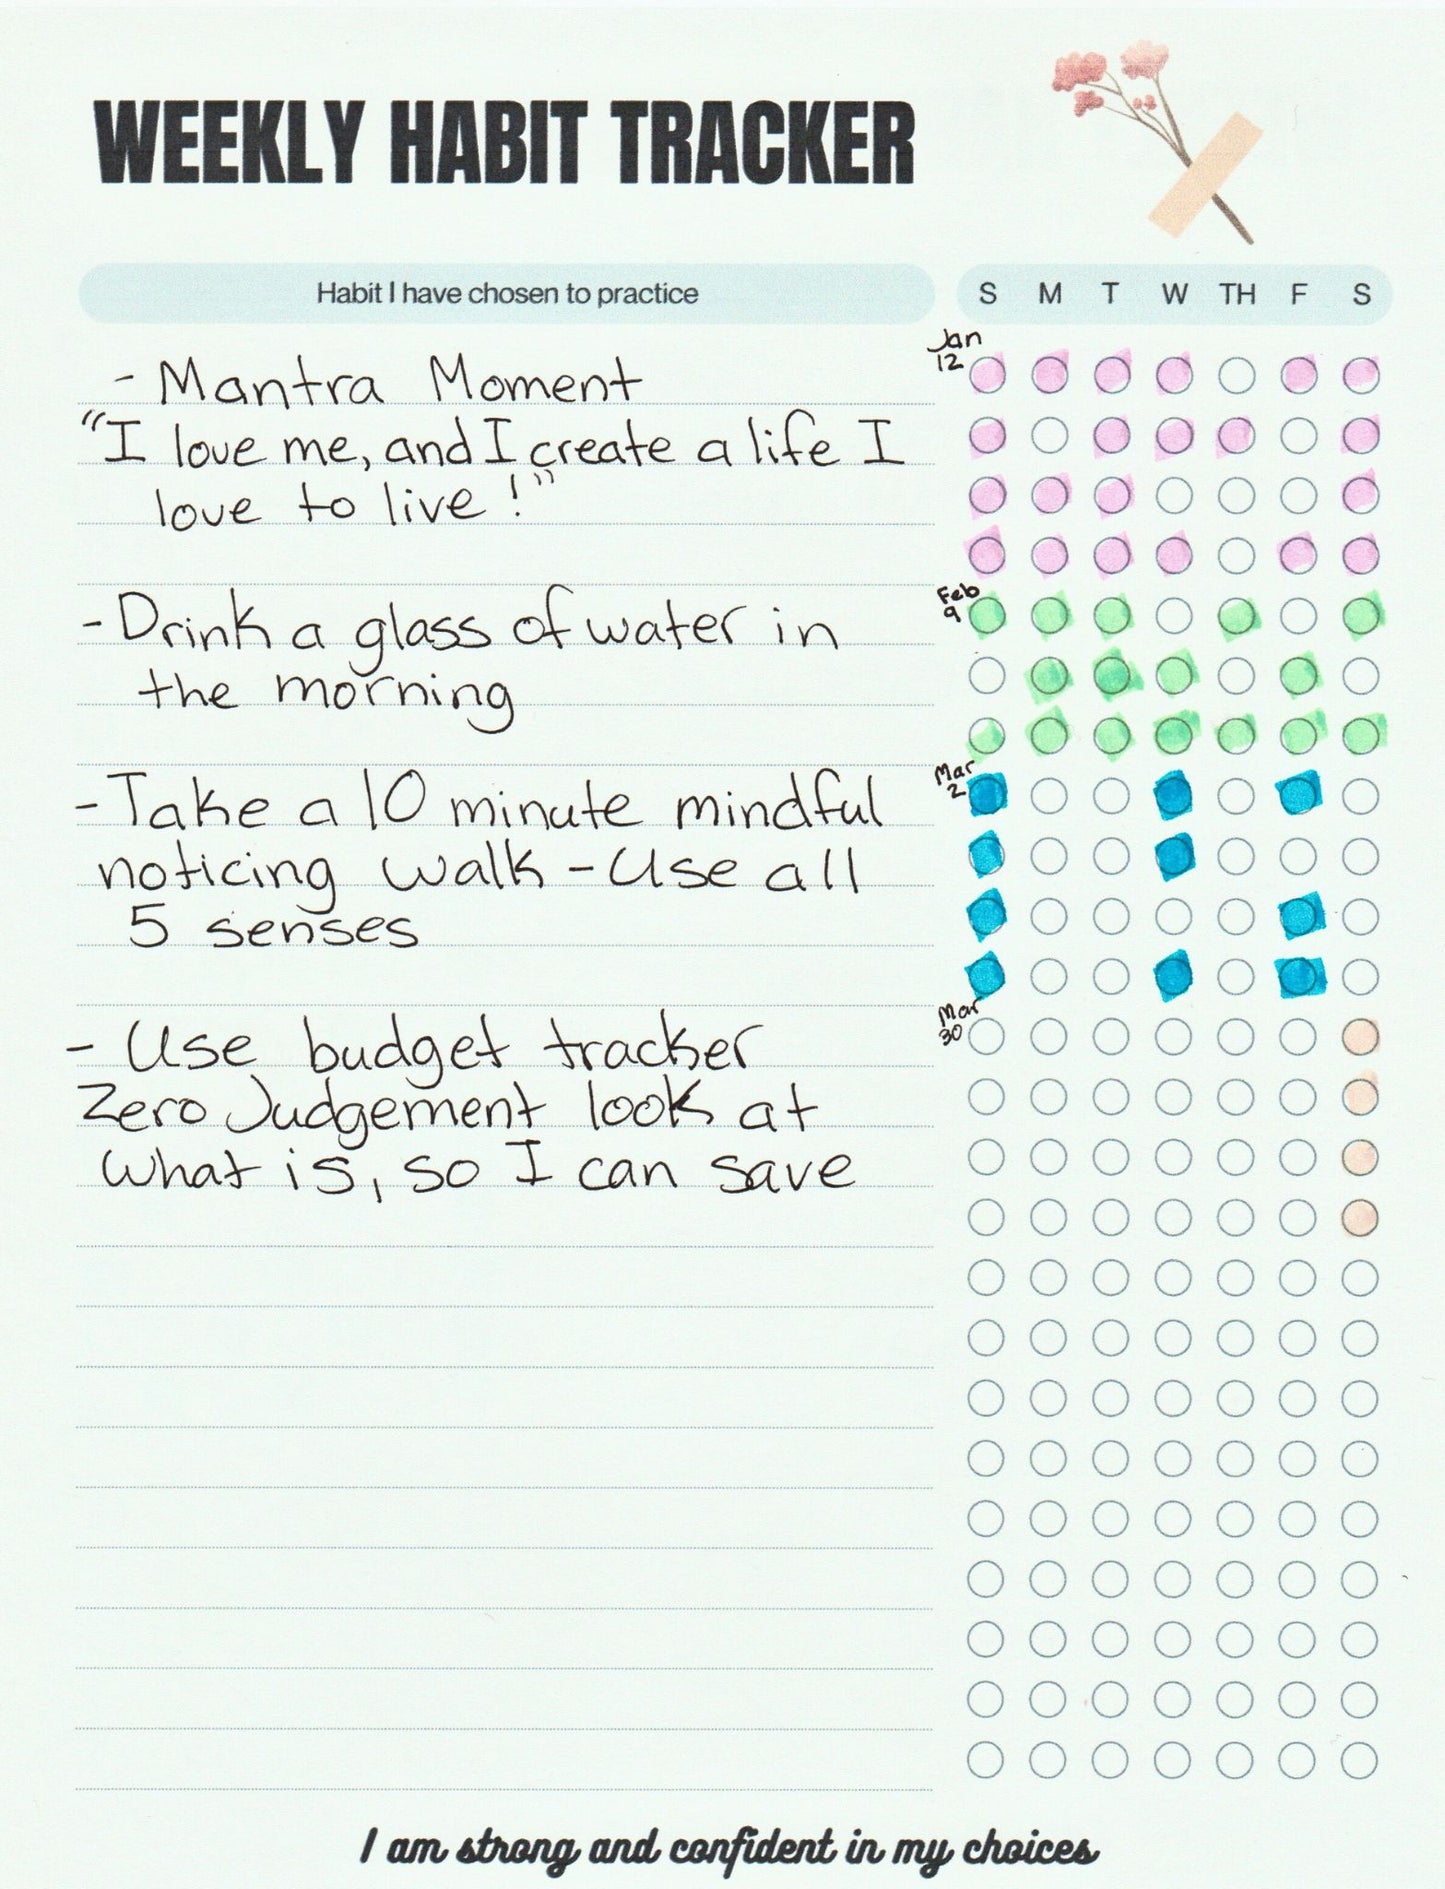 WEEKLY HABIT TRACKER
Habit I have chosen to practice
S M T W TH F S
Jan
12
- Mantra Moment
"I love me, and I create a life I
love to live!"
Feb
9
- Drink a glass of water in
the morning
Mar
2
- Take a 10 minute mindful
noticing walk - Use all
5 senses
Mar
30
- Use budget tracker
Zero Judgement look at
what is, so I can save
I am strong and confident in my choices